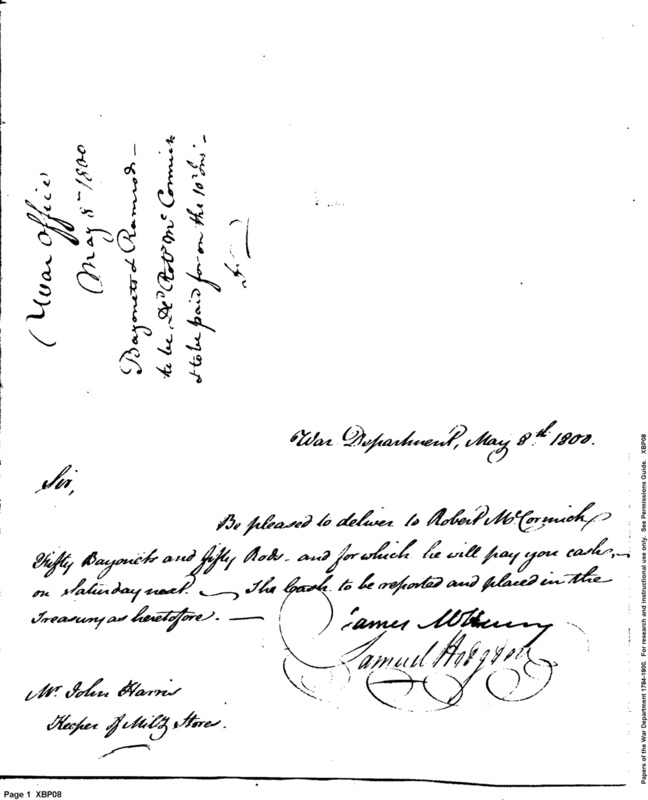 War Office
May 8th 1800
Bayonets & Ramrods -
to be Dd. Robt. McCormick
& to be paid for on the 10th ins -
War Department, May 8th 1800.
Sir,
Be pleased to deliver to Robert McCormick
Fifty Bayonets and fifty Rods - and for which he will pay you cash,
on Saturday next. — The Cash to be reported and placed in the
Treasury as heretofore. —
James McHenry
Samuel Hodgdon
Mr. John Harris
Keeper of Milty Stores.
Page 1 XBP08
Papers of the War Department 1784-1800. For research and instructional use only. See Permissions Guide. XBP08